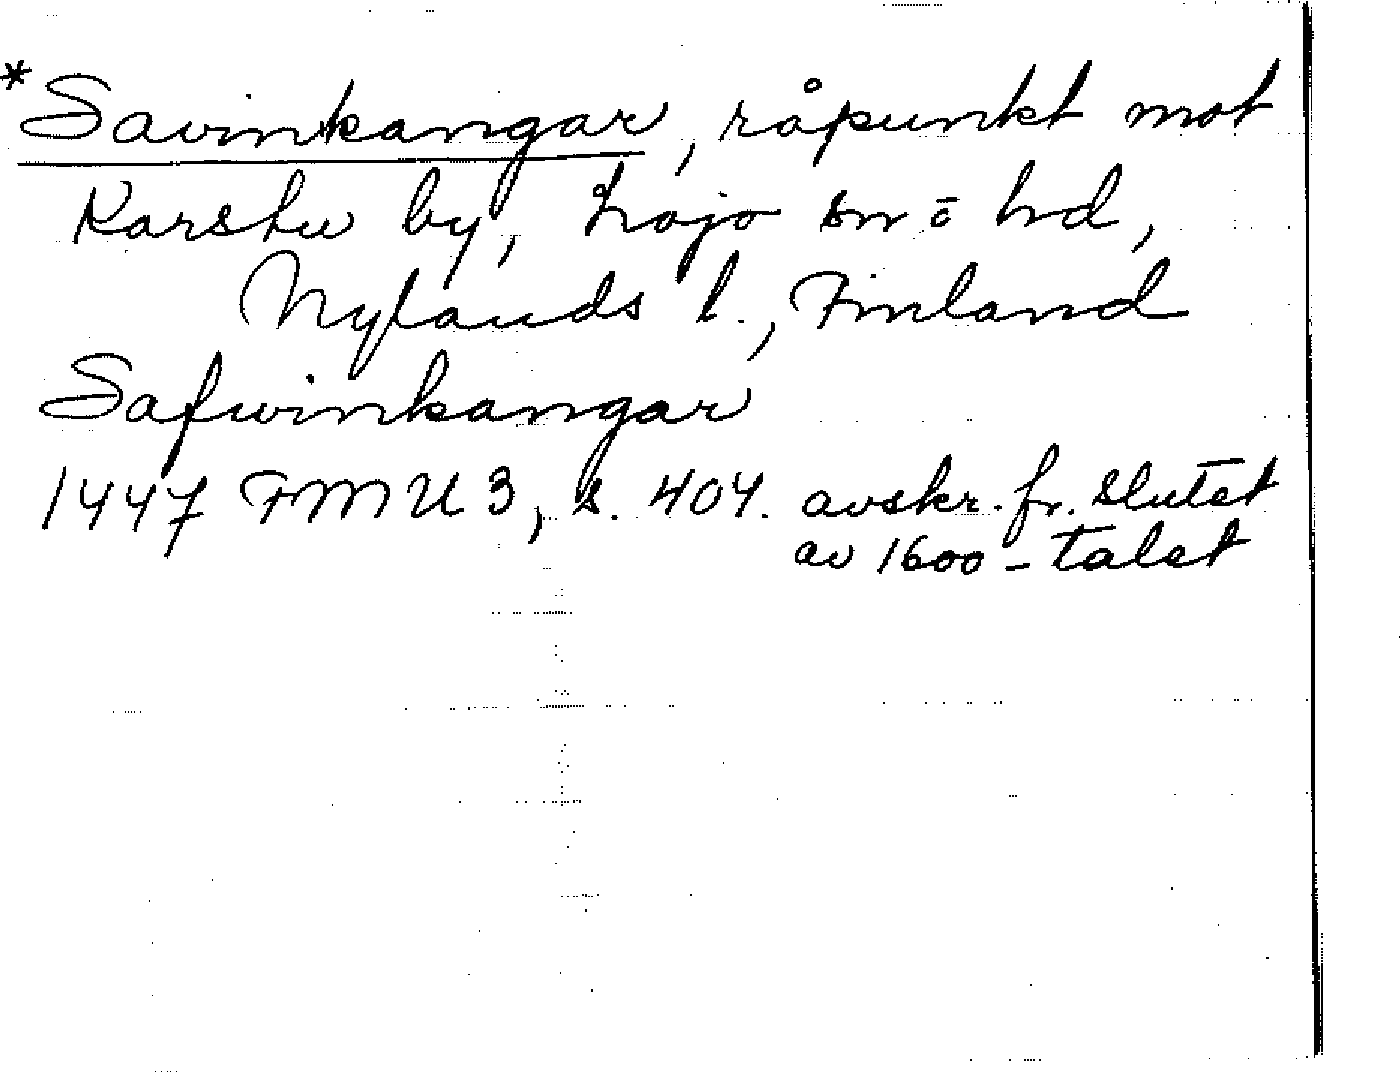 *Savinkangar, råpunkt mot
Karshu by, Lojo sn o hd,
Nylands l., Finland
Safwinkangar
1447 FMU 3, s. 404. avskr. fr. slutet
av 1600-talet